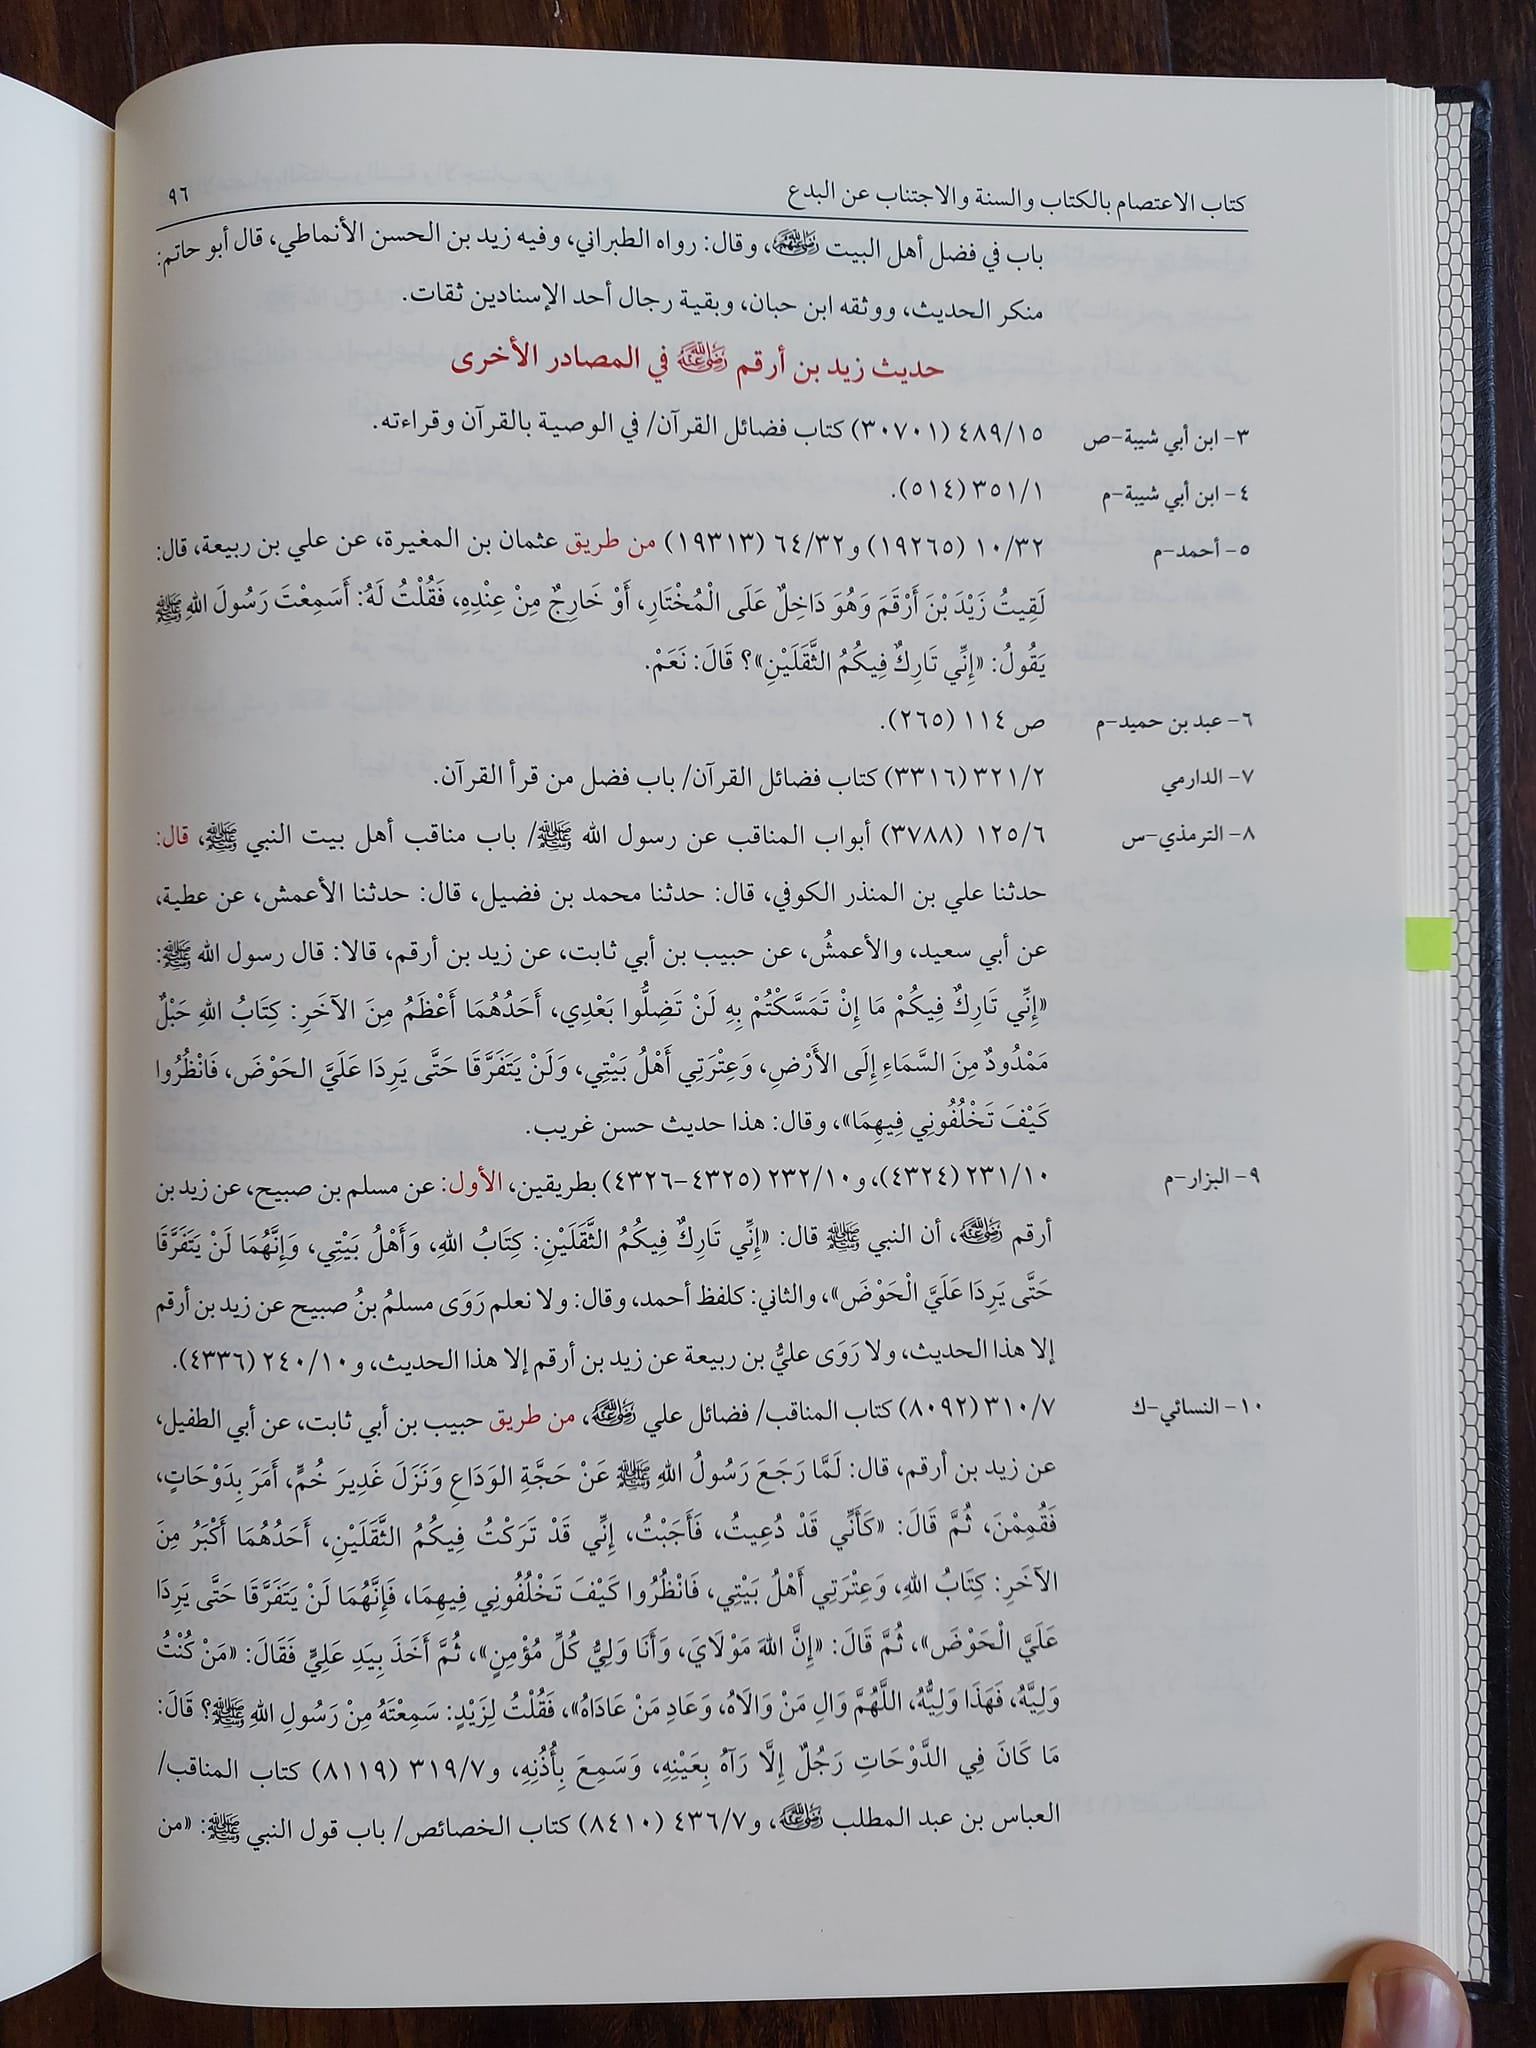 كتاب الاعتصام بالكتاب والسنة والاجتناب عن البدع ٩٦
باب في فضل أهل البيت رضي الله عنهم، وقال: رواه الطبراني، وفيه زيد بن الحسن الأنماطي، قال أبو حاتم:
منكر الحديث، ووثقه ابن حبان، وبقية رجال أحد الإسنادين ثقات.
حديث زيد بن أرقم رضي الله عنه في المصادر الأخرى
٣- ابن أبي شيبة-ص ٤٨٩/١٥ (٣٠٧٠١) كتاب فضائل القرآن/ في الوصية بالقرآن وقراءته.
٤- ابن أبي شيبة-م ٣٥١/١ (٥١٤).
٥- أحمد-م ١٠/٣٢ (١٩٢٦٥) و٦٤/٣٢ (١٩٣١٣) من طريق عثمان بن المغيرة، عن علي بن ربيعة، قال:
لَقِيتُ زَيْدَ بْنَ أَرْقَمَ وَهُوَ دَاخِلٌ عَلَى الْمُخْتَارِ، أَوْ خَارِجٌ مِنْ عِنْدِهِ، فَقُلْتُ لَهُ: أَسَمِعْتَ رَسُولَ اللهِ ﷺ
يَقُولُ: «إِنِّي تَارِكٌ فِيكُمُ الثَّقَلَيْنِ»؟ قَالَ: نَعَمْ.
٦- عبد بن حميد-م ص ١١٤ (٢٦٥).
٧- الدارمي ٣٢١/٢ (٣٣١٦) كتاب فضائل القرآن/ باب فضل من قرأ القرآن.
٨- الترمذي-س ١٢٥/٦ (٣٧٨٨) أبواب المناقب عن رسول الله ﷺ/ باب مناقب أهل بيت النبي ﷺ، قال:
حدثنا علي بن المنذر الكوفي، قال: حدثنا محمد بن فضيل، قال: حدثنا الأعمش، عن عطية،
عن أبي سعيد، والأعمشُ، عن حبيب بن أبي ثابت، عن زيد بن أرقم، قالا: قال رسول الله ﷺ:
«إِنِّي تَارِكٌ فِيكُمْ مَا إِنْ تَمَسَّكْتُمْ بِهِ لَنْ تَضِلُّوا بَعْدِي، أَحَدُهُمَا أَعْظَمُ مِنَ الآخَرِ: كِتَابُ اللهِ حَبْلٌ
مَمْدُودٌ مِنَ السَّمَاءِ إِلَى الأَرْضِ، وَعِتْرَتِي أَهْلُ بَيْتِي، وَلَنْ يَتَفَرَّقَا حَتَّى يَرِدَا عَلَيَّ الحَوْضَ، فَانْظُرُوا
كَيْفَ تَخْلُفُونِي فِيهِمَا»، وقال: هذا حديث حسن غريب.
٩- البزار-م ٢٣١/١٠ (٤٣٢٤)، و٢٣٢/١٠ (٤٣٢٥-٤٣٢٦) بطريقين، الأول: عن مسلم بن صبيح، عن زيد بن
أرقم رضي الله عنه، أن النبي ﷺ قال: «إِنِّي تَارِكٌ فِيكُمُ الثَّقَلَيْنِ: كِتَابُ اللهِ، وَأَهْلُ بَيْتِي، وَإِنَّهُمَا لَنْ يَتَفَرَّقَا
حَتَّى يَرِدَا عَلَيَّ الْحَوْضَ»، والثاني: كلفظ أحمد، وقال: ولا نعلم رَوَى مسلمُ بنُ صبيح عن زيد بن أرقم
إلا هذا الحديث، ولا رَوَى عليُّ بن ربيعة عن زيد بن أرقم إلا هذا الحديث، و٢٤٠/١٠ (٤٣٣٦).
١٠- النسائي-ك ٣١٠/٧ (٨٠٩٢) كتاب المناقب/ فضائل علي رضي الله عنه، من طريق حبيب بن أبي ثابت، عن أبي الطفيل،
عن زيد بن أرقم، قال: لَمَّا رَجَعَ رَسُولُ اللهِ ﷺ عَنْ حَجَّةِ الوَدَاعِ وَنَزَلَ غَدِيرَ خُمٍّ، أَمَرَ بِدَوْحَاتٍ،
فَقُمِمْنَ، ثُمَّ قَالَ: «كَأَنِّي قَدْ دُعِيتُ، فَأَجَبْتُ، إِنِّي قَدْ تَرَكْتُ فِيكُمُ الثَّقَلَيْنِ، أَحَدُهُمَا أَكْبَرُ مِنَ
الآخَرِ: كِتَابُ اللهِ، وَعِتْرَتِي أَهْلُ بَيْتِي، فَانْظُرُوا كَيْفَ تَخْلُفُونِي فِيهِمَا، فَإِنَّهُمَا لَنْ يَتَفَرَّقَا حَتَّى يَرِدَا
عَلَيَّ الْحَوْضَ»، ثُمَّ قَالَ: «إِنَّ اللهَ مَوْلَايَ، وَأَنَا وَلِيُّ كُلِّ مُؤْمِنٍ»، ثُمَّ أَخَذَ بِيَدِ عَلِيٍّ فَقَالَ: «مَنْ كُنْتُ
وَلِيَّهُ، فَهَذَا وَلِيُّهُ، اللَّهُمَّ وَالِ مَنْ وَالَاهُ، وَعَادِ مَنْ عَادَاهُ»، فَقُلْتُ لِزَيْدٍ: سَمِعْتَهُ مِنْ رَسُولِ اللهِ ﷺ؟ قَالَ:
مَا كَانَ فِي الدَّوْحَاتِ رَجُلٌ إِلَّا رَآهُ بِعَيْنِهِ، وَسَمِعَ بِأُذُنِهِ، و٣١٩/٧ (٨١١٩) كتاب المناقب/
العباس بن عبد المطلب رضي الله عنه، و٤٣٦/٧ (٨٤١٠) كتاب الخصائص/ باب قول النبي ﷺ: «من